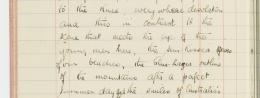 to the knee. Every where desolation
and this in contrast to the
scene that meets the eye of the
young men here, the sun kissed
of our beaches, the blue hazed outline
of the mountains after a perfect
summer day and the smiles of Australia's